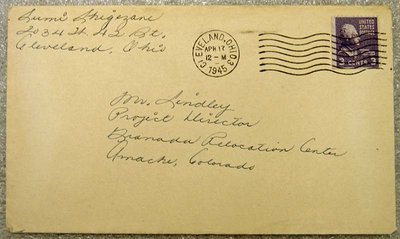 Sumi Shigezane
2034 W. 42 Pl.
Cleveland, Ohio
CLEVELAND, OHIO. 3
APR 17
12-M
1945
UNITED STATES
POSTAGE
3 CENTS 3
Mr. Lindley
Project Director
Granada Relocation Center
Amache, Colorado